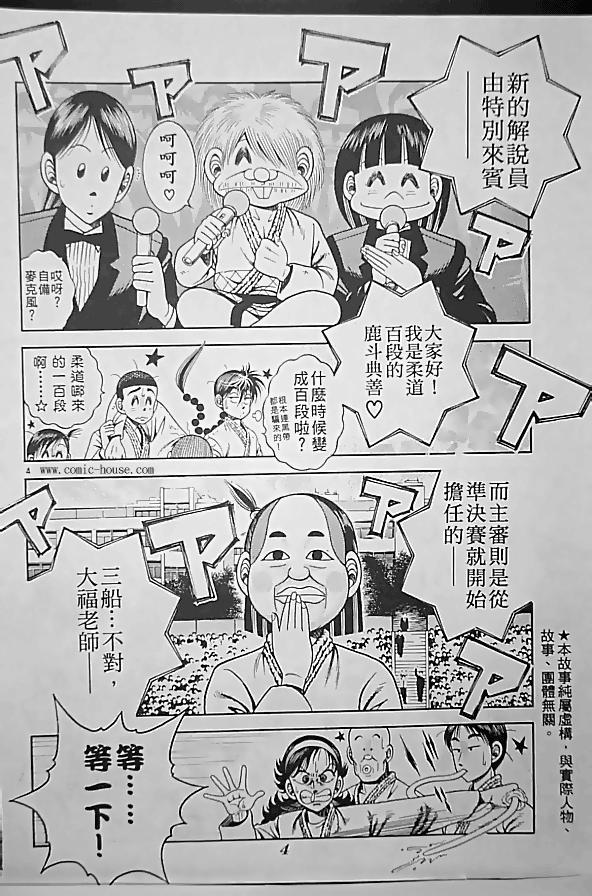 新的解說員
由特別來賓
呵呵呵♡
哎呀？
自備
麥克風？
大家好！
我是柔道
百段的
鹿斗典善♡
什麼時候變
成百段啦？
根本連黑帶
都是騙來的！
柔道哪來
的一百段
啊……☆
4
www.comic-house.com
而主審則是從
準決賽就開始
擔任的——
三船…不對，
大福老師——
★本故事純屬虛構，與實際人物、
故事、團體無關。
等……
等一下！
4